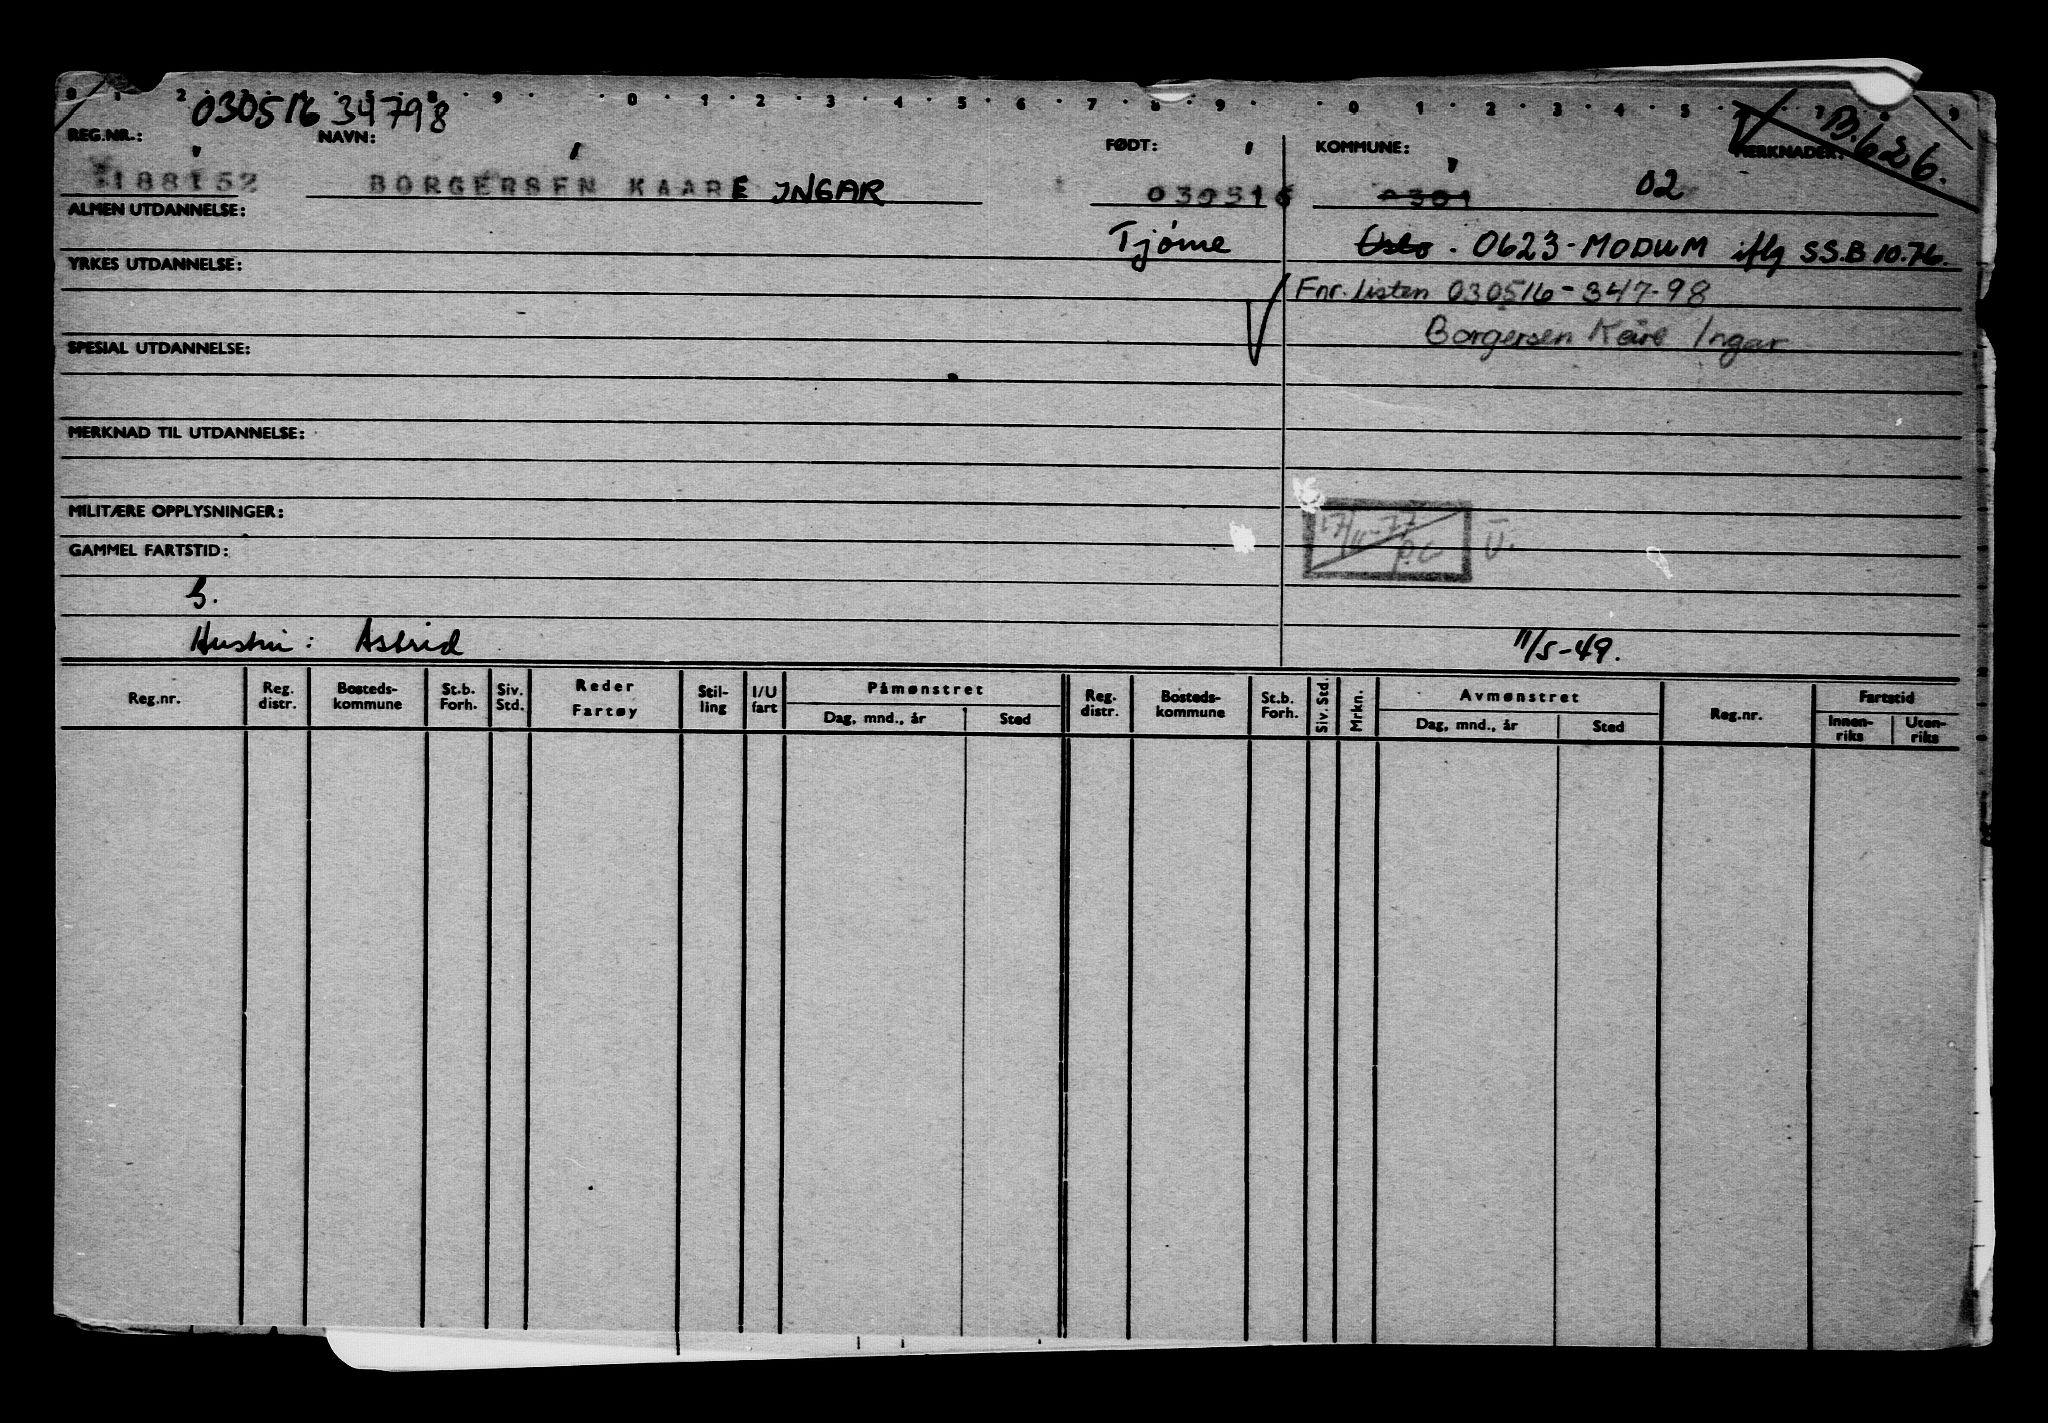 030516 34798
B.626.
REG.NR.: NAVN: FØDT: KOMMUNE: MERKNADER:
188152 BORGERSEN KAARE INGAR 030516 0301 02
ALMEN UTDANNELSE:
Tjøme Oslo. 0623-MODUM iflg SS.B 10.76.
YRKES UTDANNELSE:
Fnr. listen 030516-347-98
Borgersen Kåre Ingar
SPESIAL UTDANNELSE:
MERKNAD TIL UTDANNELSE:
MILITÆRE OPPLYSNINGER:
17/11-77 U.
GAMMEL FARTSTID:
Hustru: Astrid 11/5-49.
Reg.nr. Reg. distr. Bosteds-kommune St.b. Forh. Siv. Std. Reder Fartøy Stil-ling I/U fart Påmønstret Dag, mnd., år Sted Reg. distr. Bosteds-kommune St.b. Forh. Siv. Std. Mrkn. Avmønstret Dag, mnd., år Sted Reg.nr. Fartstid Innen-riks Uten-riks